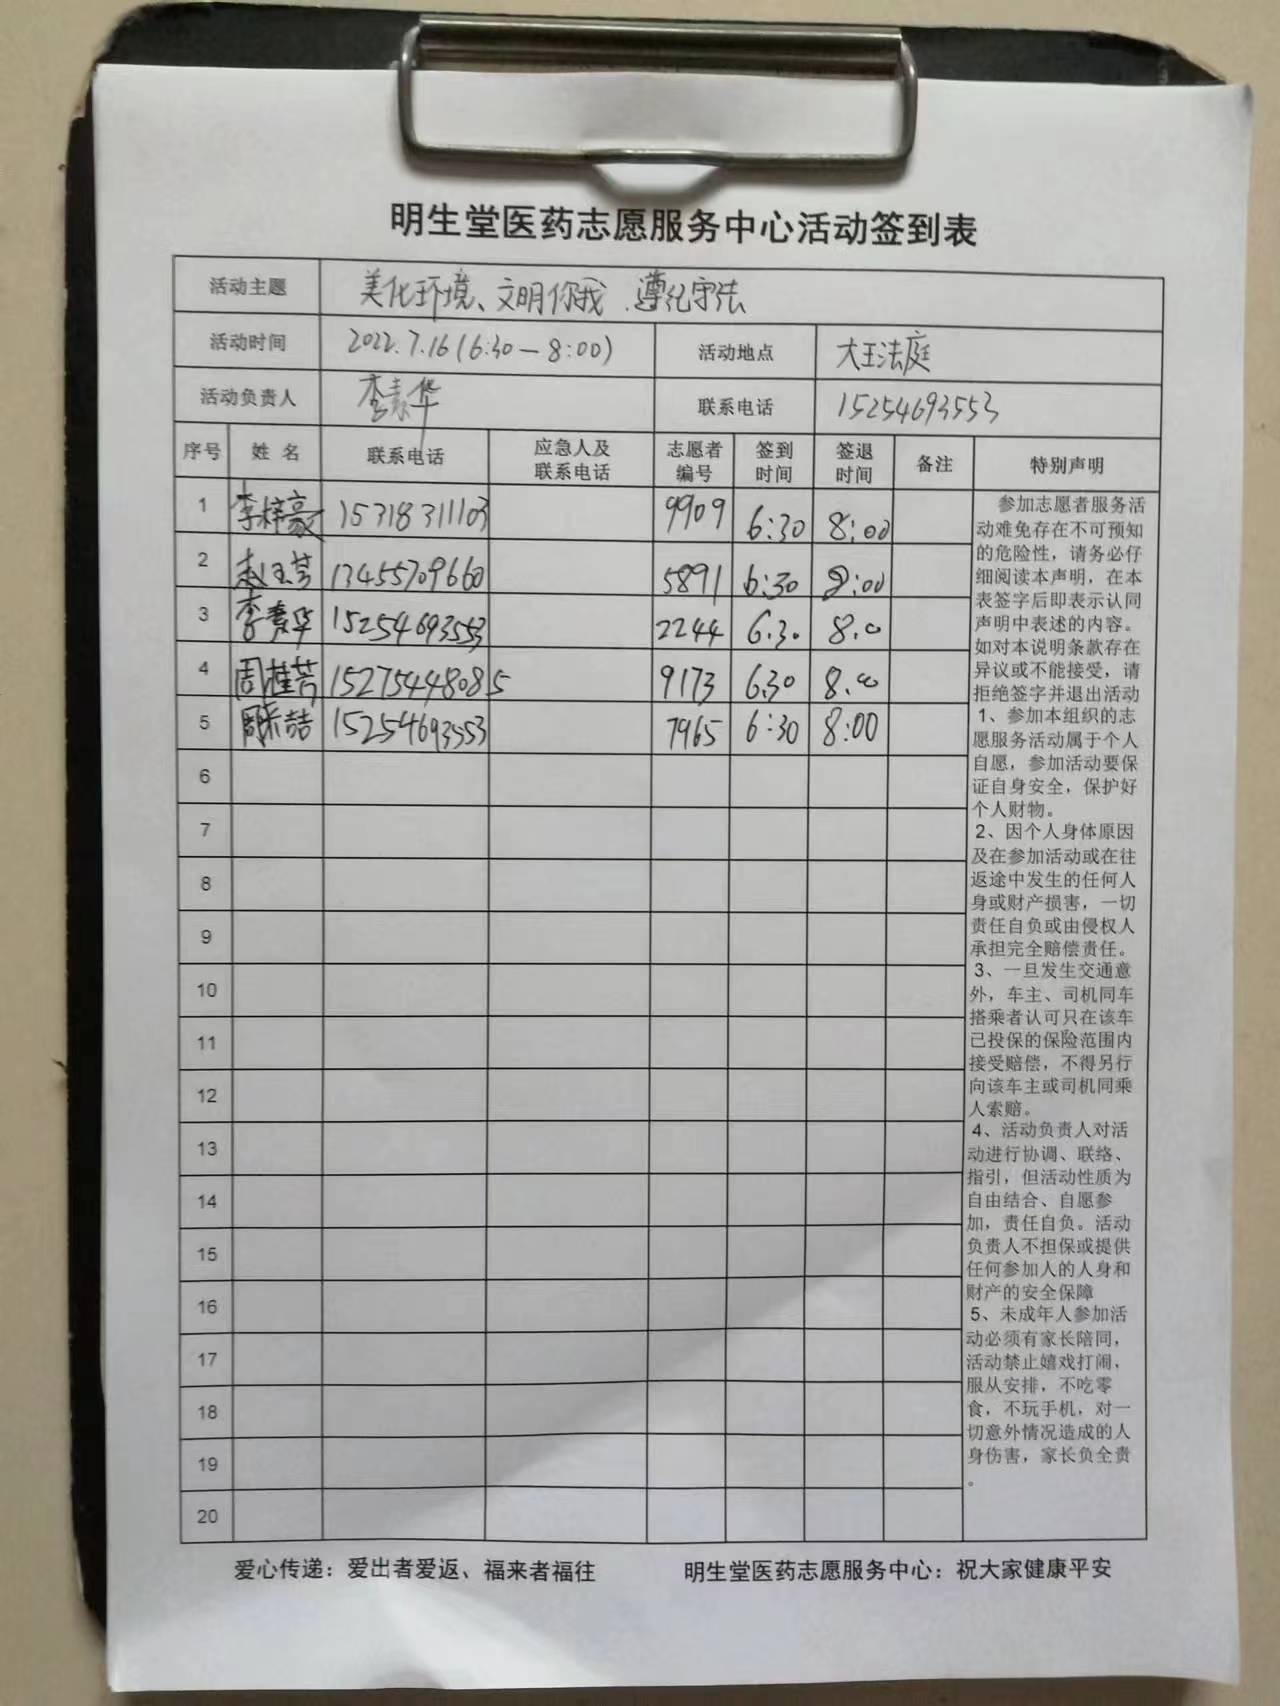 明生堂医药志愿服务中心活动签到表
活动主题 美化环境、文明你我、遵纪守法
活动时间 2022.7.16(6:30—8:00) 活动地点 大王法庭
活动负责人 李素华 联系电话 15254693553
序号 姓名 联系电话 应急人及联系电话 志愿者编号 签到时间 签退时间 备注 特别声明
1 李梓豪 15318311103 9909 6:30 8:00
2 13455709660 5891 6:30 8:00
3 李素华 15254693553 2244 6.30 8.0
4 周桂芳 15275448085 9173 6.30 8.00
5 15254693553 7965 6:30 8:00
6
7
8
9
10
11
12
13
14
15
16
17
18
19
20
参加志愿者服务活
动难免存在不可预知
的危险性，请务必仔
细阅读本声明，在本
表签字后即表示认同
声明中表述的内容。
如对本说明条款存在
异议或不能接受，请
拒绝签字并退出活动
1、参加本组织的志
愿服务活动属于个人
自愿，参加活动要保
证自身安全，保护好
个人财物。
2、因个人身体原因
及在参加活动或在往
返途中发生的任何人
身或财产损害，一切
责任自负或由侵权人
承担完全赔偿责任。
3、一旦发生交通意
外，车主、司机同车
搭乘者认可只在该车
已投保的保险范围内
接受赔偿，不得另行
向该车主或司机同乘
人索赔。
4、活动负责人对活
动进行协调、联络、
指引，但活动性质为
自由结合、自愿参
加，责任自负。活动
负责人不担保或提供
任何参加人的人身和
财产的安全保障
5、未成年人参加活
动必须有家长陪同，
活动禁止嬉戏打闹，
服从安排，不吃零
食，不玩手机，对一
切意外情况造成的人
身伤害，家长负全责
。
爱心传递：爱出者爱返、福来者福往 明生堂医药志愿服务中心：祝大家健康平安